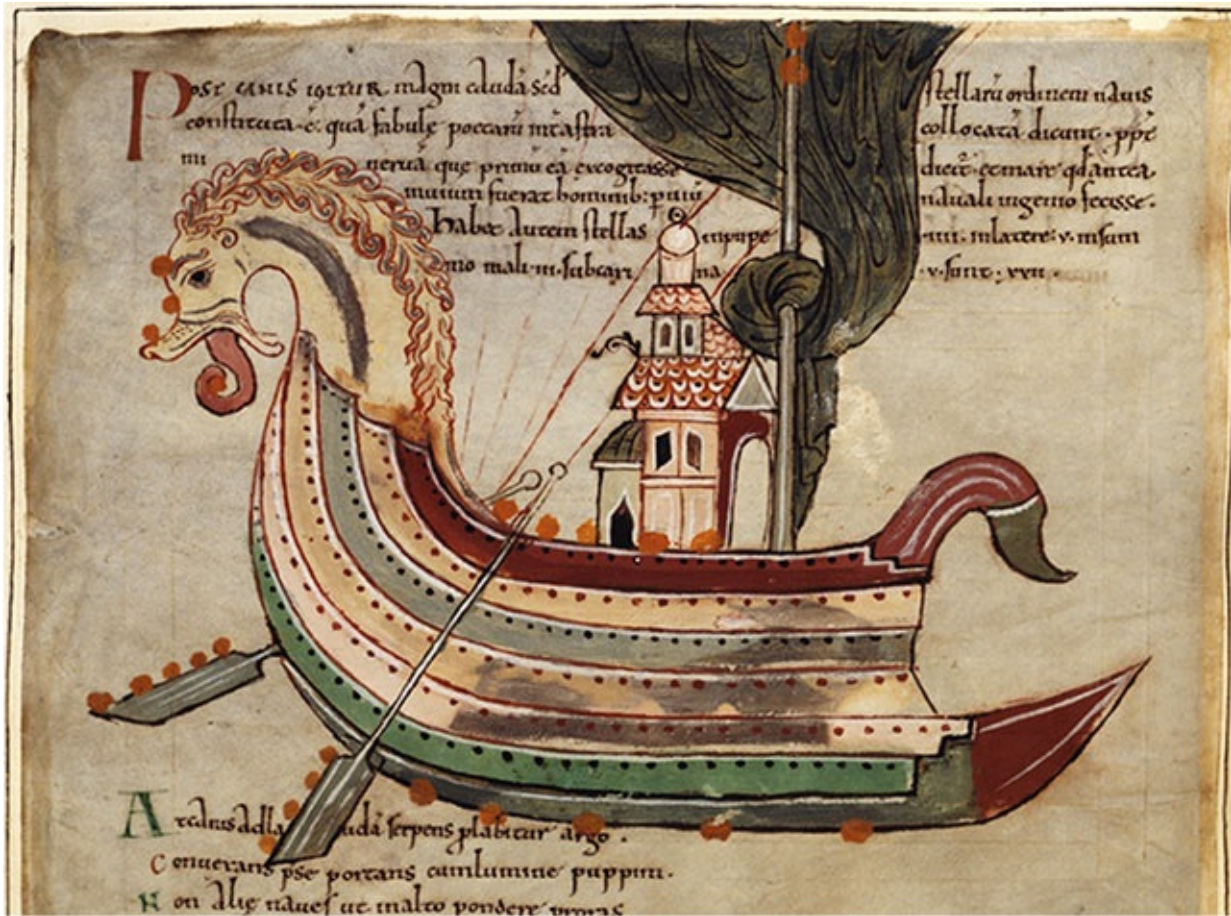 Post canis igitur magni caudā sed stellarū ordinem nauis
constituta·ē· quā fabulę poetarū int astra collocatā dicunt· ppt
mi neruā que primū eā excogitasse dicit· et mare qd antea
inuium fuerat hominib: puiū nauali ingenio fecisse·
habet autem stellas inpupe ·iiii· inlatere·v· insum
mo mali·iii· subcari na ·v· sunt· xvii·
At canis ad caudā serpens plabitur argo·
Conuersam pse portans cumlumine puppim·
Non alię naues ut inalto pondere proras